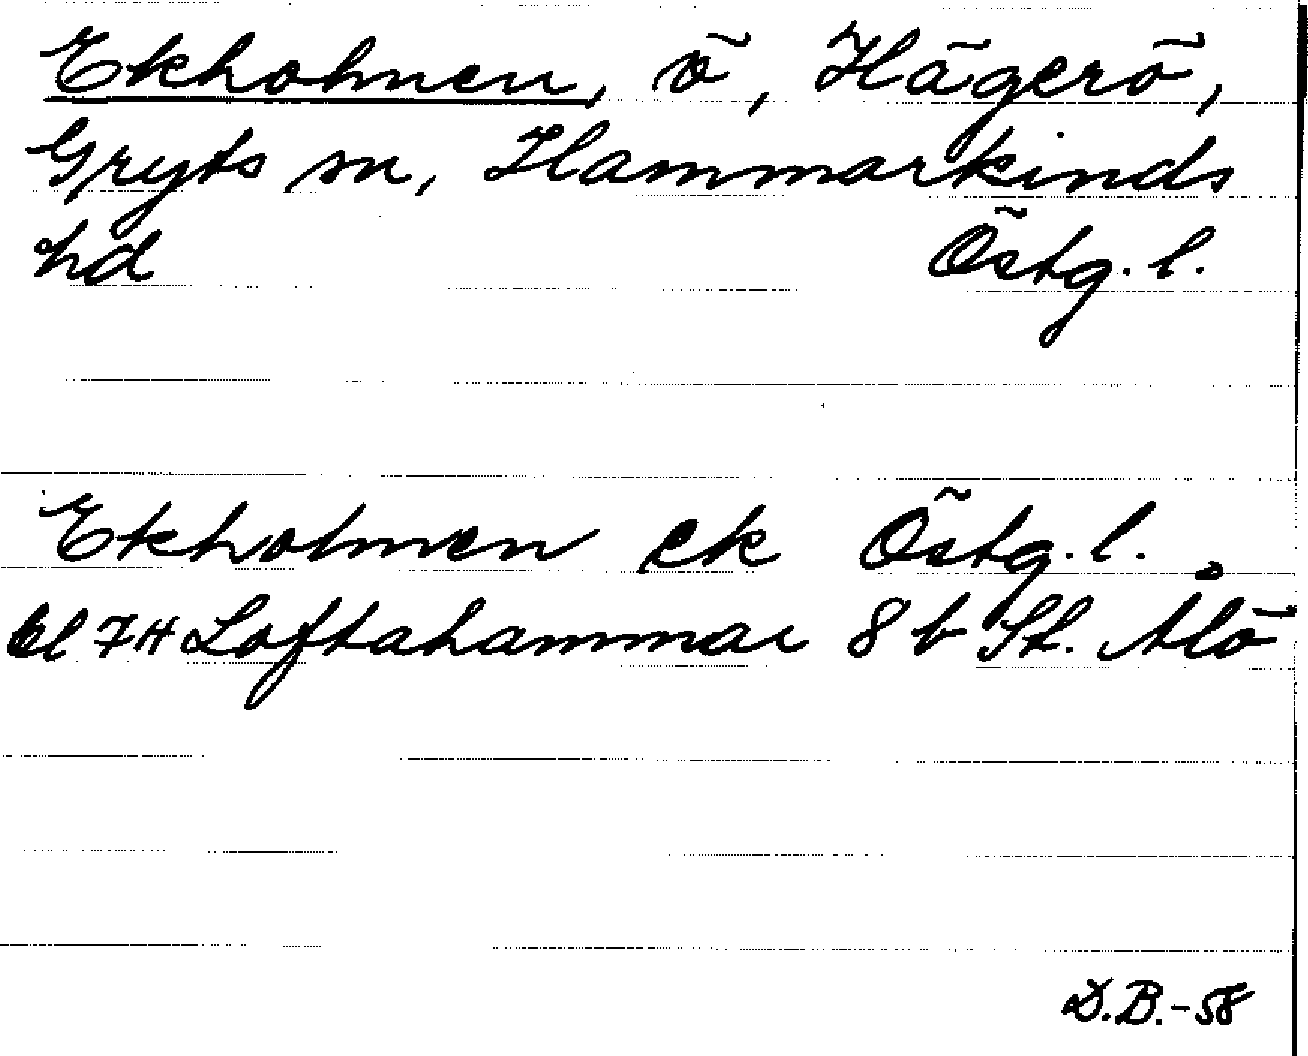 Ekholmen, ö, Hägerö,
Gryts sn, Hammarkinds
hd Östg. l.
Ekholmen ek Östg. l.
bl 7H Loftahammar 8 b St. Ålö
D.B.-58